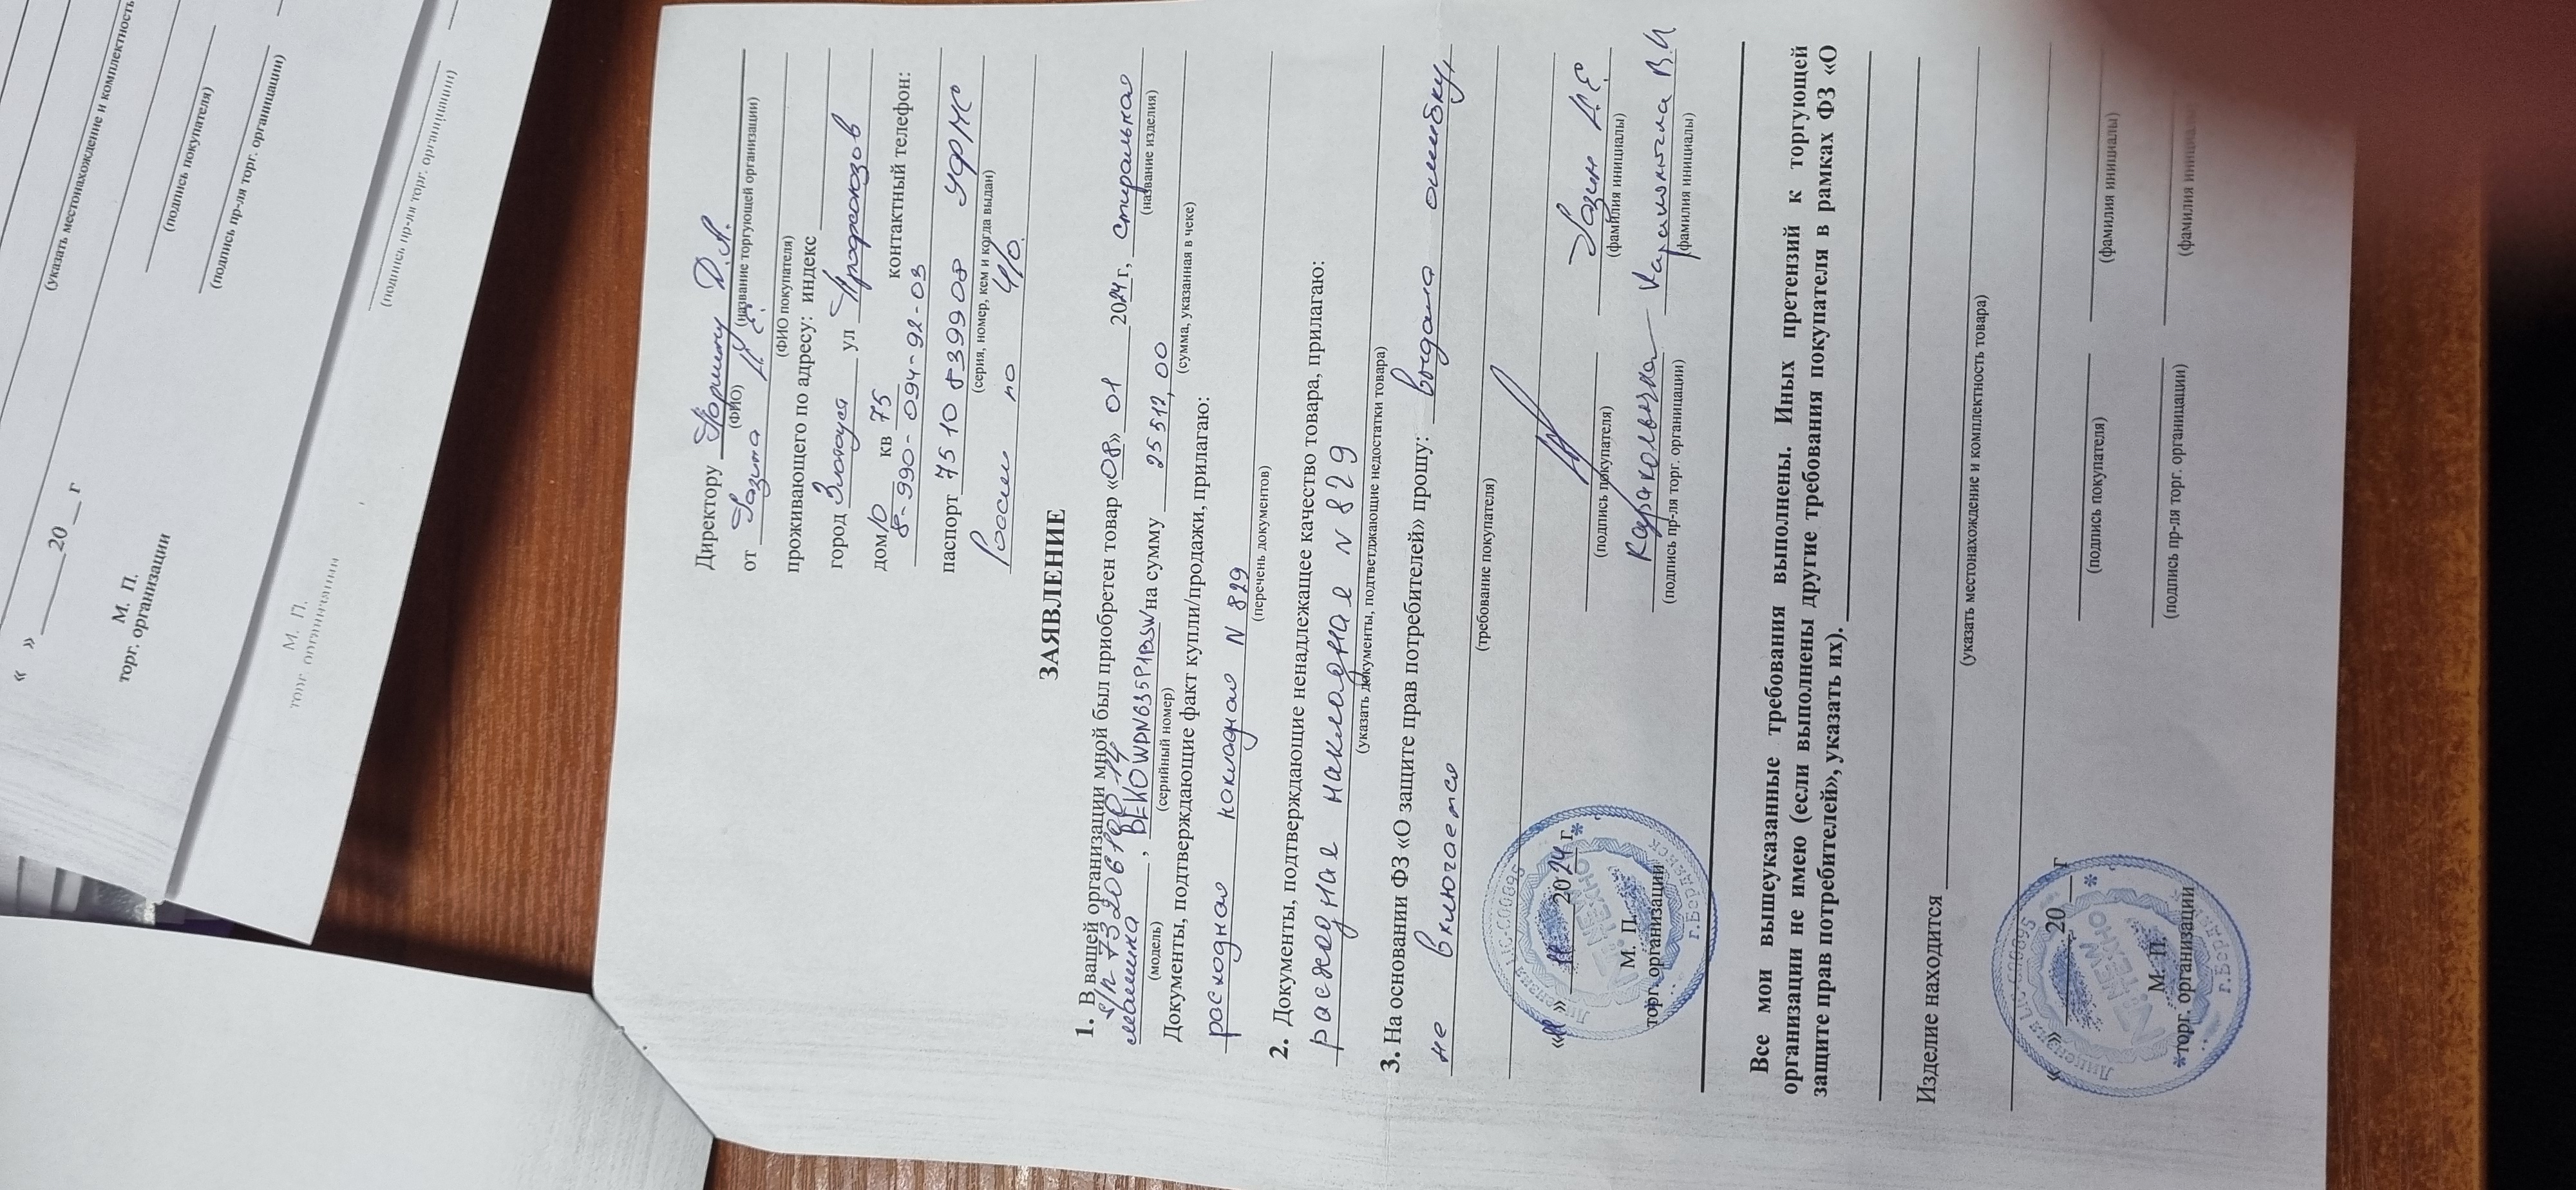 Директору Паршину Д.А.
(ФИО) (название торгующей организации)
от Гагина И.Е.
(ФИО покупателя)
проживающего по адресу: индекс
город Златоуст ул Профсоюзов
дом 10 кв 75 контактный телефон:
8-990-094-92-03
паспорт 75 10 839908 УФМС
(серия, номер, кем и когда выдан)
России по Ч/О.
ЗАЯВЛЕНИЕ
1. В вашей организации мной был приобретен товар «08» 01 2024 г, стиральная
(название изделия)
s/n
машинка , BEKOWDN635P1BSW на сумму 25 512,00
(модель) (серийный номер) (сумма, указанная в чеке)
Документы, подтверждающие факт купли/продажи, прилагаю:
расходная накладная N 829
(перечень документов)
2. Документы, подтверждающие ненадлежащее качество товара, прилагаю:
расходная накладная N 829
(указать документы, подтверждающие недостатки товара)
3. На основании ФЗ «О защите прав потребителей» прошу: выдана ошибку,
не включается
(требование покупателя)
(подпись покупателя) (фамилия инициалы)
«11» 2024 г
(подпись пр-ля торг. организации) (фамилия инициалы)
М. П.
торг. организации
Все мои вышеуказанные требования выполнены. Иных претензий к торгующей
организации не имею (если выполнены другие требования покупателя в рамках ФЗ «О
защите прав потребителей», указать их).
Изделие находится
(указать местонахождение и комплектность товара)
« » 20 г
(подпись покупателя) (фамилия инициалы)
М. П.
торг. организации
(подпись пр-ля торг. организации) (фамилия инициалы)
NEW
ТЕХНО
г.Бердянск
(указать местонахождение и комплектность
(подпись покупателя)
« » 20 г
(подпись пр-ля торг. организации)
М. П.
торг. организации
(подпись пр-ля торг. организации)
М. П.